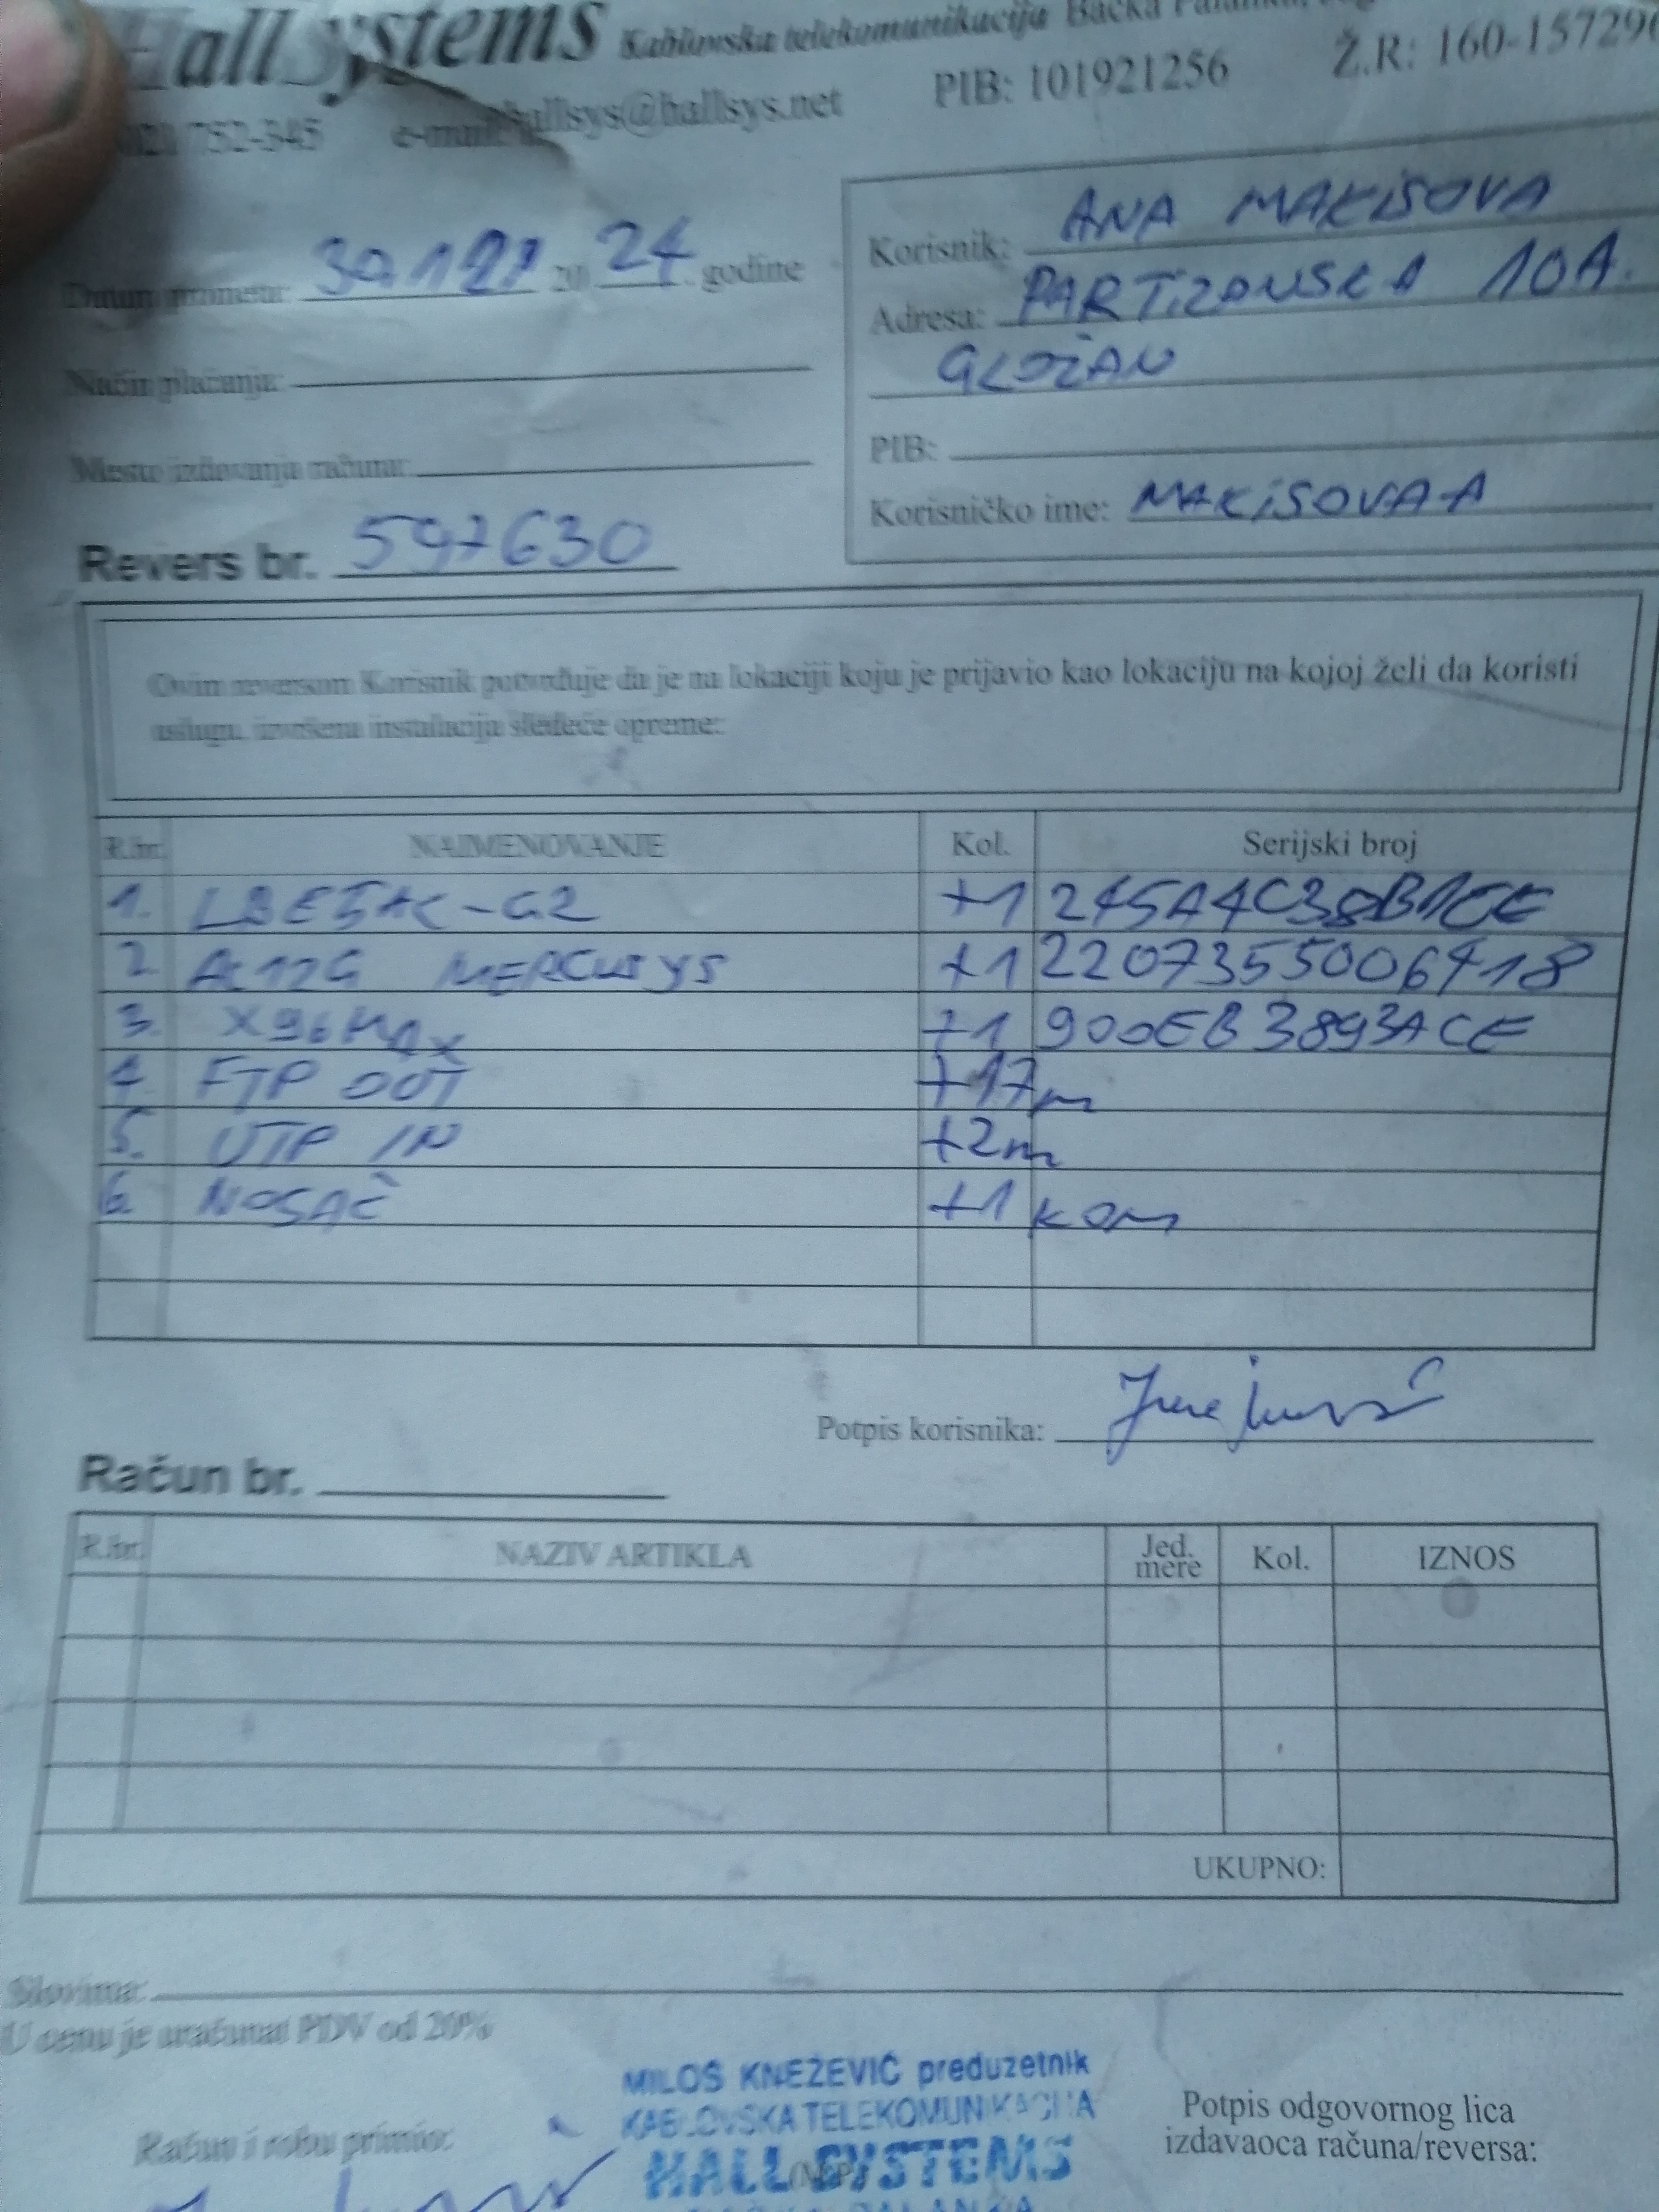 Hall Systems Kablovska telekomunikacija Bačka Palanka,
021 752-345 e-mail: hallsys@hallsys.net PIB: 101921256 Ž.R: 160-15729
Datum prometa: 20 24 godine
Korisnik: ANA MAKISOVA
Adresa: PARTIZANSKA 10A.
GLOŽAN
Način plaćanja:
Mesto izdavanja računa:
PIB:
Korisničko ime: MAKISOVA-A
Revers br. 597630
Ovim reversom Korisnik potvrđuje da je na lokaciji koju je prijavio kao lokaciju na kojoj želi da koristi
uslugu, izvršena instalacija sledeće opreme:
R.br. NAIMENOVANJE Kol. Serijski broj
1. LBE5AC-G2 +1 245A4C38B1CE
2. AC12G MERCUSYS +1 2207355006918
3. X96MAX +1 900EB3893ACE
4. FTP OUT +17m
5. UTP IN +2m
6. NOSAČ +1 kom
Potpis korisnika:
Račun br.
R.br. NAZIV ARTIKLA Jed. mere Kol. IZNOS
UKUPNO:
Slovima:
U cenu je uračunat PDV od 20%
MILOŠ KNEŽEVIĆ preduzetnik
KABLOVSKA TELEKOMUNIKACIJA
HALL SYSTEMS
(M.P.)
BAČKA PALANKA
Račun i robu primio:
Potpis odgovornog lica
izdavaoca računa/reversa: